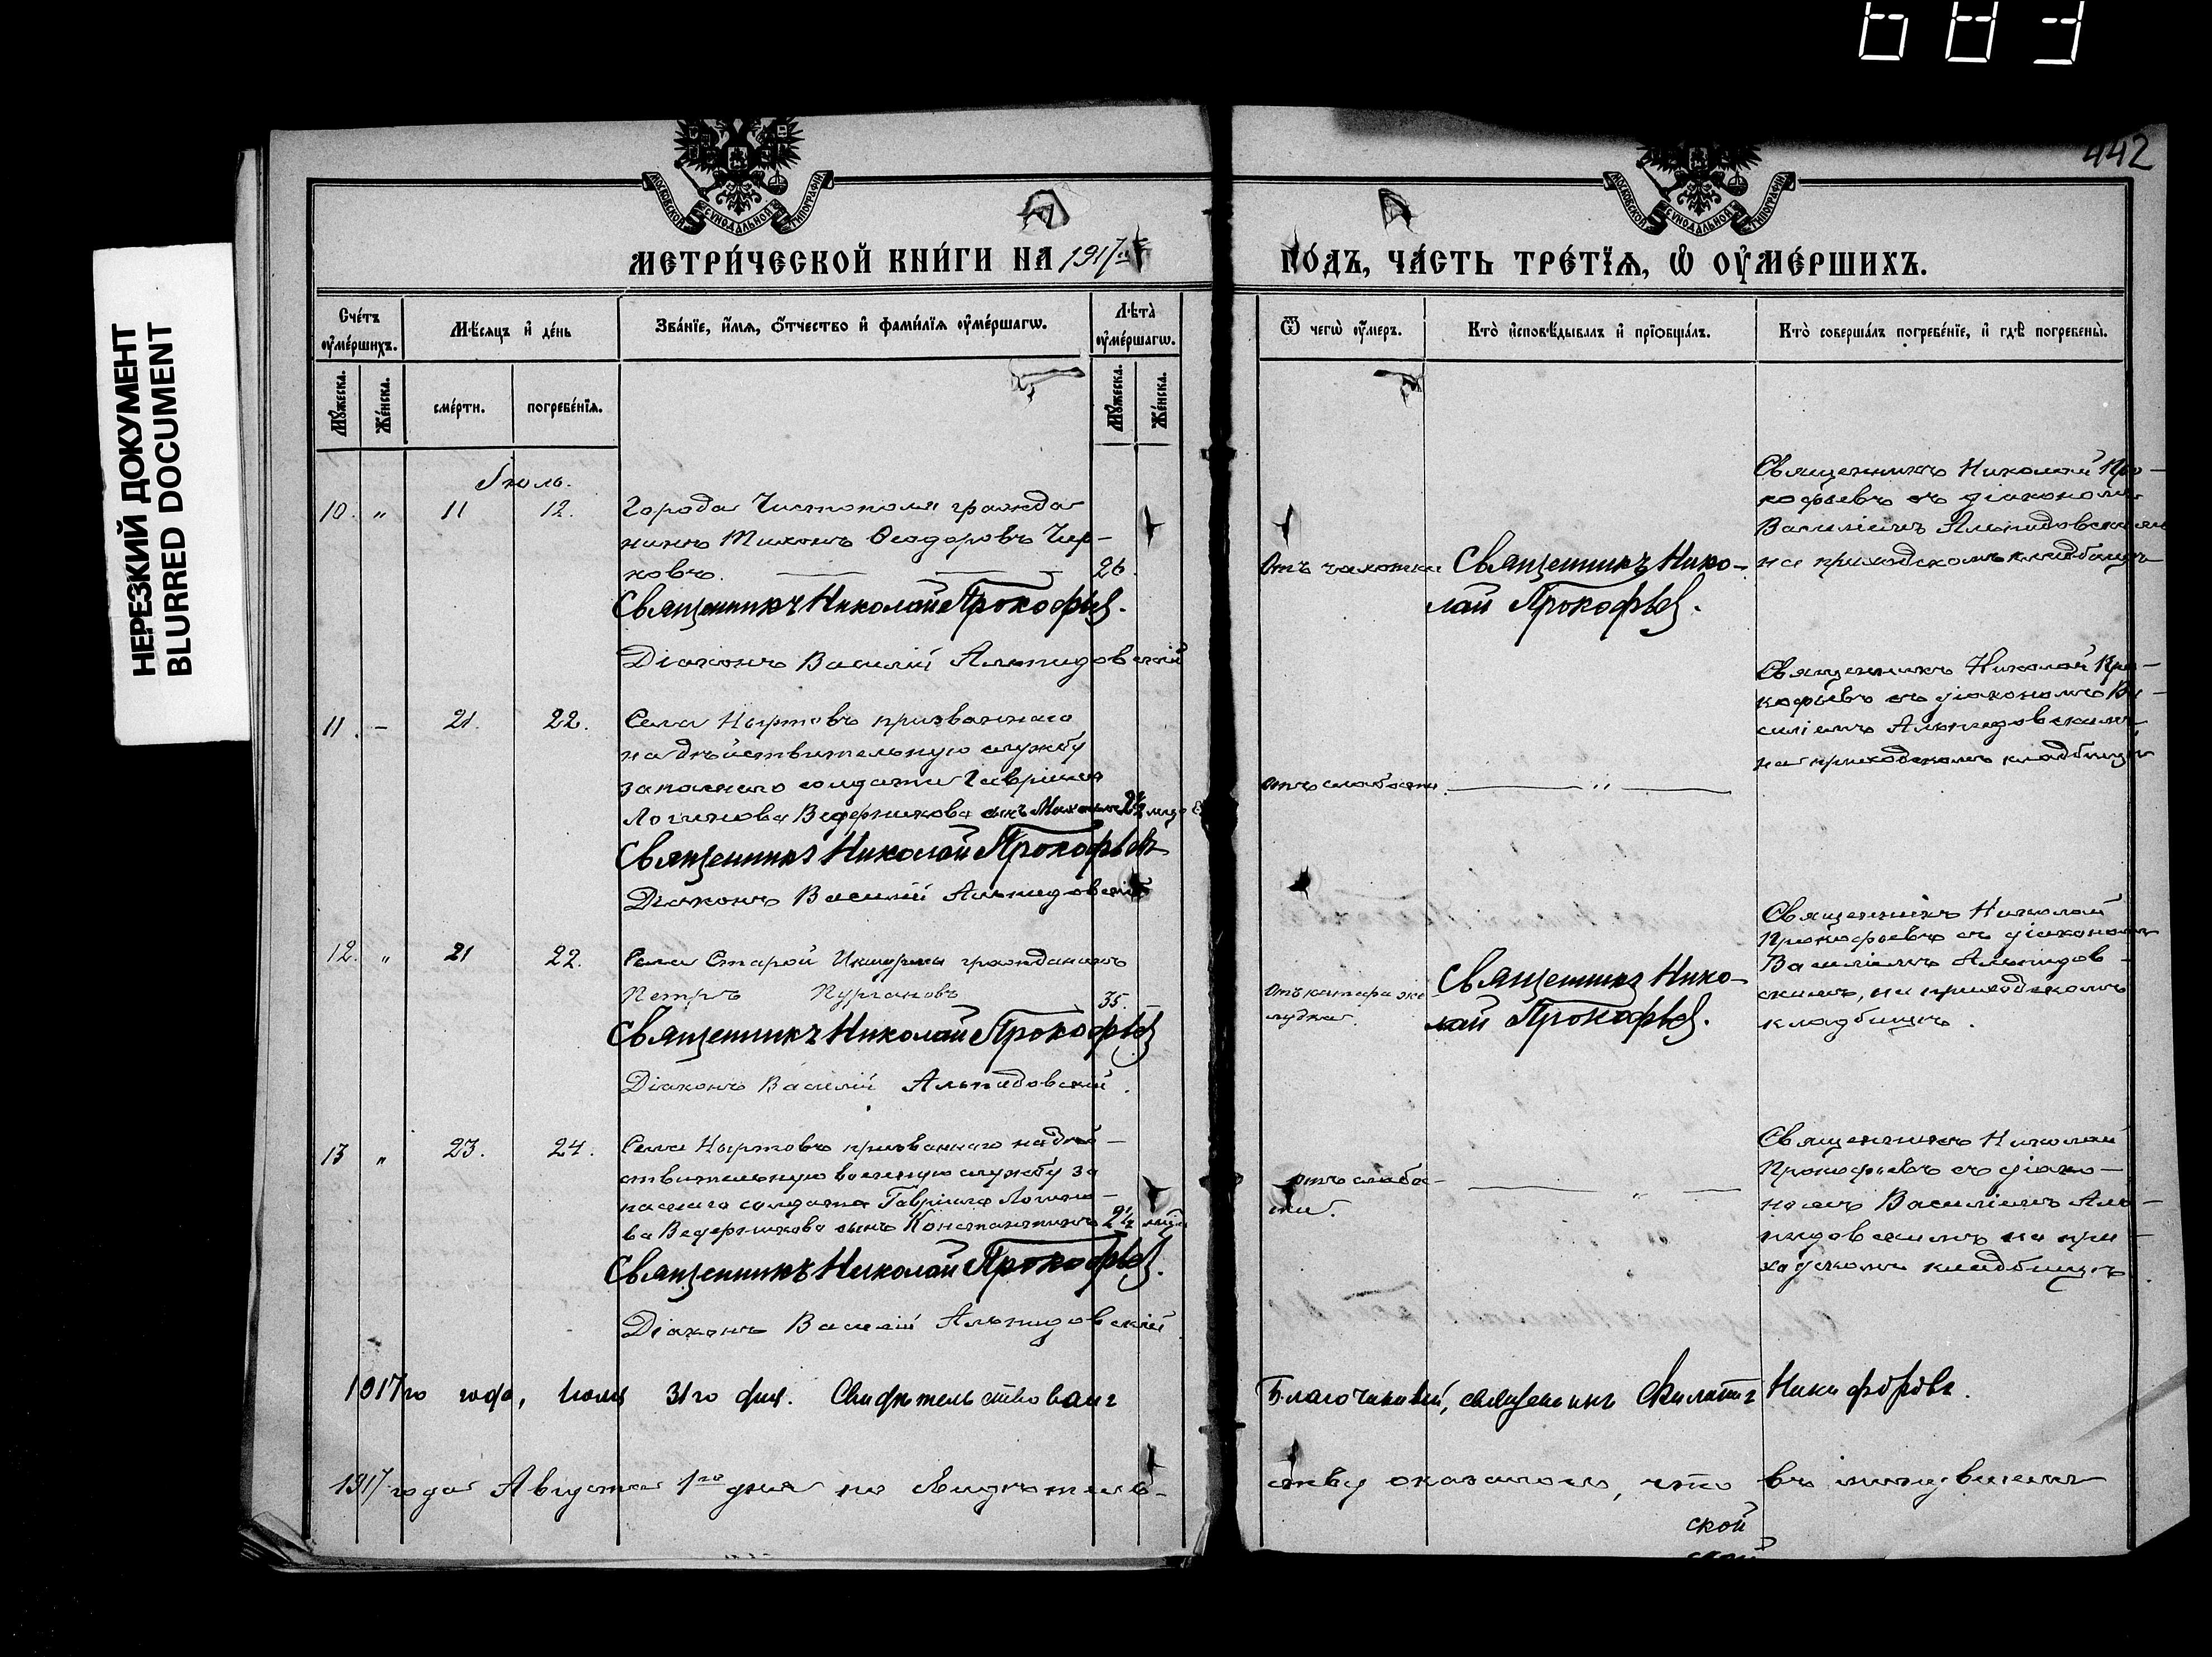 683
442
НЕРЕЗКИЙ ДОКУМЕНТ
BLURRED DOCUMENT
МОСКОВСКОЙ СѴНОДАЛЬНОЙ ТИПОГРАФІИ
МОСКОВСКОЙ СѴНОДАЛЬНОЙ ТИПОГРАФІИ
МЕТРИ́ЧЕСКОЙ КНИ́ГИ НА 1917й
ГО́ДЪ, ЧА́СТЬ ТРЕ́ТЇѦ, Ѡ҆ ОУ҆МЕ́РШИХЪ.
Сче́тъ оу҆ме́ршихъ.
Мѣ́сѧцъ и҆ де́нь
Зва́нїе, и҆́мѧ, ѻ҆́тчество и҆ фами́лїѧ оу҆ме́ршагѡ.
Лѣ́та оу҆ме́ршагѡ.
Ѿ чегѡ̀ оу҆́меръ.
Кто̀ и҆сповѣ́дывалъ и҆ прїѡбща́лъ.
Кто̀ соверша́лъ погребе́нїе, и҆ гдѣ̀ погребены̀.
Мꙋ́жеска.
Же́нска.
сме́рти.
погребе́нїѧ.
Мꙋ́жеска.
Же́нска.
Іюль.
10. „ 11 12.
Города Чистополя гражда
нинъ Тихонъ Ѳеодоровъ Чир-
ковъ. 26.
Священникъ Николай Прокофьев.
Діаконъ Василій Альпидовскій
Отъ чахотки
Священникъ Нико-
лай Прокофьев.
Священникъ Николай Про-
кофьевъ съ діакономъ
Василіемъ Альпидовскимъ
на приходскомъ кладбищѣ
11. - 21. 22.
Села Ныртовъ призваннаго
на дѣйствительную службу
запаснаго солдата Гавріила
Логинова Ведерникова сынъ 2½
Священникъ Николай Прокофьевъ
Діаконъ Василій Альпидовскій
отъ слабости „
Священникъ Николай Про-
кофьевъ съ діакономъ Ва-
силіемъ Альпидовскимъ
на приходскомъ кладбищѣ
12. „ 21 22.
Села Старой Икшурмы гражданинъ
Петръ Пургановъ 35.
Священникъ Николай Прокофьев
Діаконъ Василій Альпидовскій.
Отъ катара же
лудка.
Священникъ Нико-
лай Прокофьев.
Священникъ Николай
Прокофьевъ съ діакономъ
Василіемъ Альпидов-
скимъ, на приходскомъ
кладбищѣ.
13 „ 23. 24.
Села Ныртовъ призваннаго на дѣй-
ствительную военную службу за
паснаго солдата Гавріила Логино-
ва Ведерникова сынъ Константинъ 2½
Священникъ Николай Прокофьев.
Діаконъ Василій Альпидовскій
отъ слабо-
сти. „
Священникъ Николай
Прокофьевъ съ діако-
номъ Василіемъ Аль-
пидовскимъ на при-
ходскомъ кладбищѣ
1917го года, Іюля 31го дня. Свидѣтельствовалъ
Благочинный, священникъ Филиппъ Никифоровъ.
1917 года Августа 1го дня по свидѣтель-
ству оказалось, что въ минувшемъ
ской